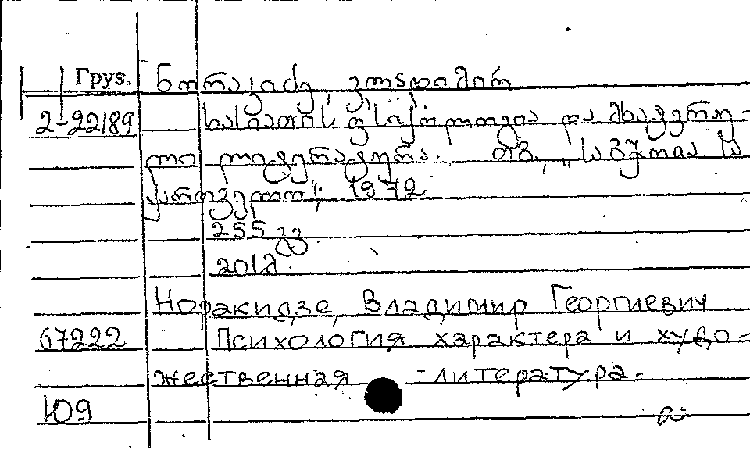 Груз. ნორაკიძე, ვლადიმირ
2-22189 ხასიათის ფსიქოლოგია და მხატვრუ-
ლი ლიტერატურა. თბ., „საბჭოთა სა
ქართველო", 1972
255 გვ
Норакидзе, Владимир Георгиевич
67222 Психология характера и худо-
жественная литература.
Ю9